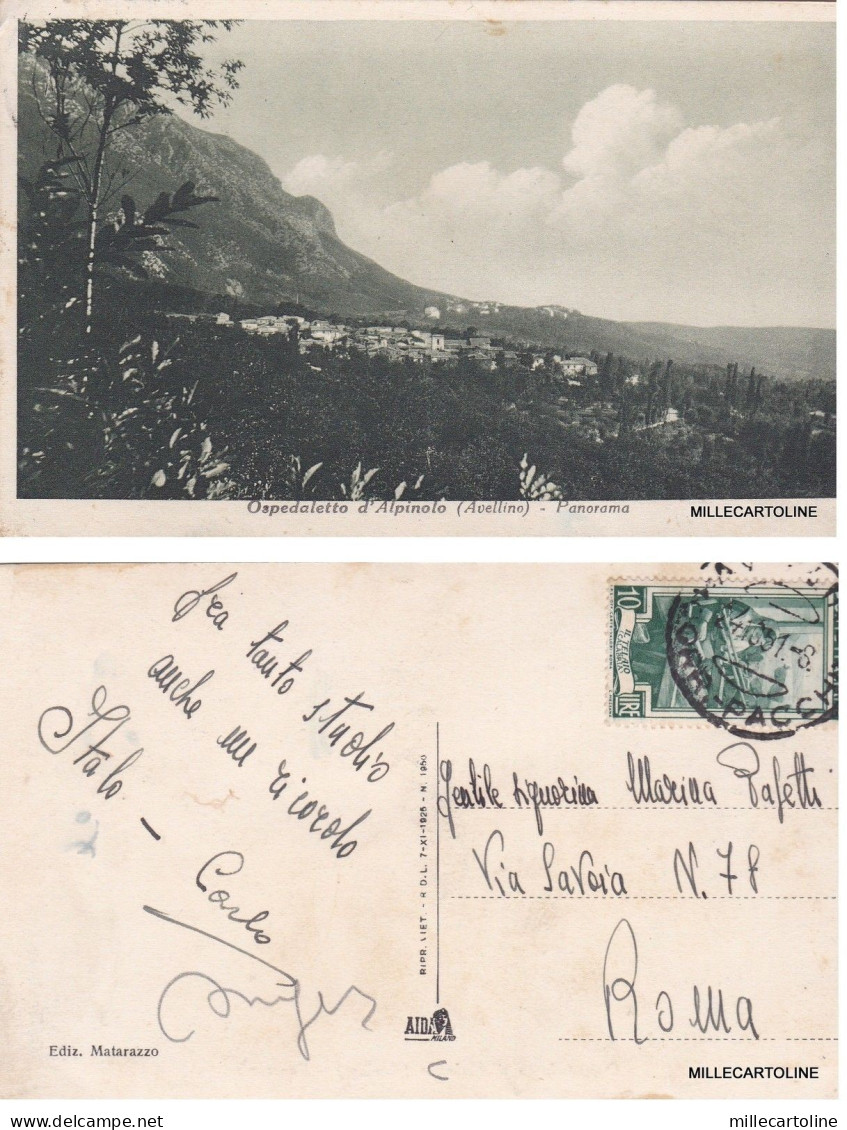 Ospedaletto d'Alpinolo (Avellino) - Panorama
MILLECARTOLINE
Fra tanto studio
anche me ricordo
Italo -
Carlo
10
IL TELAIO
CALABRIA
LIRE
RIPR. VIET. - R.D.L. 7-XI-1925 - N. 1950
Gentile signorina Marina Pafetti
Via Savoia N. 78
Roma
AIDA
MILANO
Ediz. Matarazzo
MILLECARTOLINE
www.delcampe.net
millecartoline